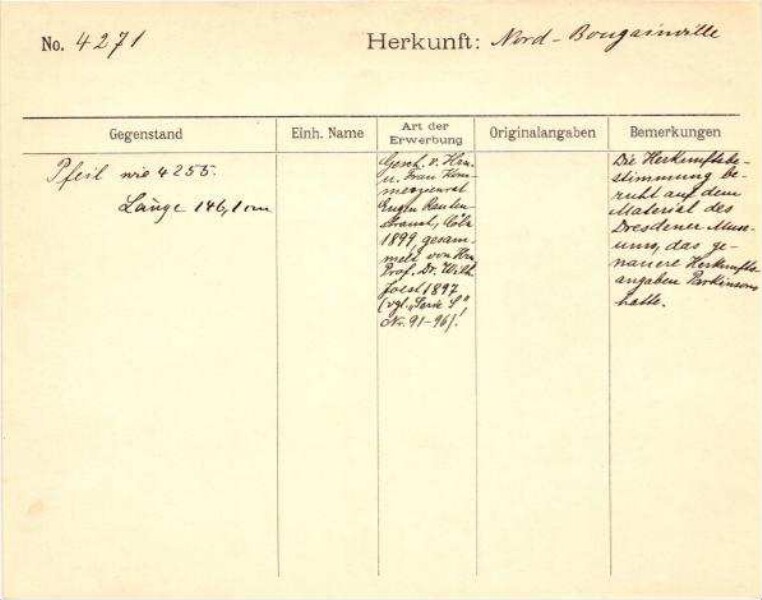 No. 4271
Herkunft: Nord-Bougainville
Gegenstand
Einh. Name
Art der
Erwerbung
Originalangaben
Bemerkungen
Pfeil wie 4255.
Länge 146,1 cm
Gesch. v. Hrn.
u. Frau Kom-
merzienrat
Eugen Rauten-
strauch, Cöln
1899, gesam-
melt von Hrn
Prof. Dr. Wilh.
Joest 1897
(vgl. „Serie S"
Nr. 91-96)!
Die Herkunftsbe-
stimmung be-
ruht auf dem
Material des
Dresdener Muse-
ums, das ge-
nauere Herkunfts
angaben Parkinsons
hatte.